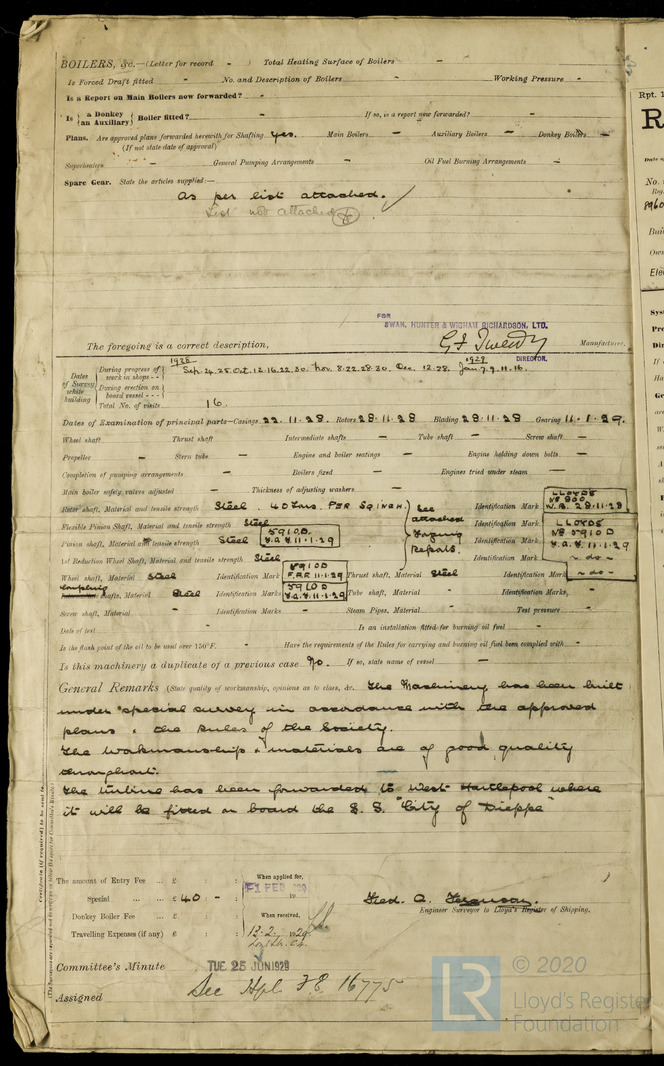 BOILERS, &c.—(Letter for record - Total Heating Surface of Boilers -
Is Forced Draft fitted - No. and Description of Boilers - Working Pressure -
Is a Report on Main Boilers now forwarded? -
Is { a Donkey / an Auxiliary } Boiler fitted? - If so, is a report now forwarded? -
Plans. Are approved plans forwarded herewith for Shafting yes. Main Boilers - Auxiliary Boilers - Donkey Boilers -
(If not state date of approval)
Superheaters - General Pumping Arrangements - Oil Fuel Burning Arrangements -
Spare Gear. State the articles supplied:—
As per list attached.
List not attached
FOR
SWAN, HUNTER & WIGHAM RICHARDSON, LTD.
The foregoing is a correct description, Manufacturer.
DIRECTOR.
Dates of Survey while building
1928 1929
During progress of work in shops - - Sep. 24. 25. Oct. 12. 16. 22. 30. Nov. 8. 22. 28. 30. Dec. 12. 28. Jan. 7. 9. 11. 16.
During erection on board vessel - - -
Total No. of visits 16.
Dates of Examination of principal parts—Casings 22.11.28. Rotors 28.11.28 Blading 28.11.28 Gearing 11.1.29.
Wheel shaft Thrust shaft Intermediate shafts - Tube shaft - Screw shaft -
Propeller - Stern tube - Engine and boiler seatings - Engine holding down bolts -
Completion of pumping arrangements - Boilers fixed - Engines tried under steam -
Main boiler safety valves adjusted - Thickness of adjusting washers -
Rotor shaft, Material and tensile strength Steel. 40 Tons. Per Sq inch. See Identification Mark LLOYDS No 900 W.B. 28.11.28
Flexible Pinion Shaft, Material and tensile strength Steel attached Identification Mark LLOYDS No 5910D
Pinion shaft, Material and tensile strength Steel 5910D 11.1.29 Forging Identification Mark 11.1.29
1st Reduction Wheel Shaft, Material and tensile strength Steel Reports. Identification Mark - do -
Wheel shaft, Material Steel Identification Mark 5910D F.A.F. 11.1.29 Thrust shaft, Material Steel Identification Mark - do -
Coupling shafts, Material Steel Identification Marks 5910D 11.1.29 Tube shaft, Material - Identification Marks -
Screw shaft, Material - Identification Marks - Steam Pipes, Material - Test pressure -
Date of test - Is an installation fitted for burning oil fuel -
Is the flash point of the oil to be used over 150°F. - Have the requirements of the Rules for carrying and burning oil fuel been complied with -
Is this machinery a duplicate of a previous case No. If so, state name of vessel -
General Remarks (State quality of workmanship, opinions as to class, &c. The Machinery has been built
under special survey in accordance with the approved
plans & the Rules of the Society.
The workmanship & materials are of good quality
throughout.
The turbine has been forwarded to West Hartlepool where
it will be fitted on board the S.S. "City of Dieppe"
The amount of Entry Fee ... £ : : When applied for,
Special ... ... £ 40 : - : 1 FEB 1929
Donkey Boiler Fee ... £ : : When received,
Travelling Expenses (if any) £ : : 13.2. 1929
Fred. A. Ferguson.
Engineer Surveyor to Lloyd's Register of Shipping.
Committee's Minute TUE 25 JUN 1929
Assigned See Hpl F8 16775
© 2020
LR Lloyd's Register
Foundation
Rpt. 1